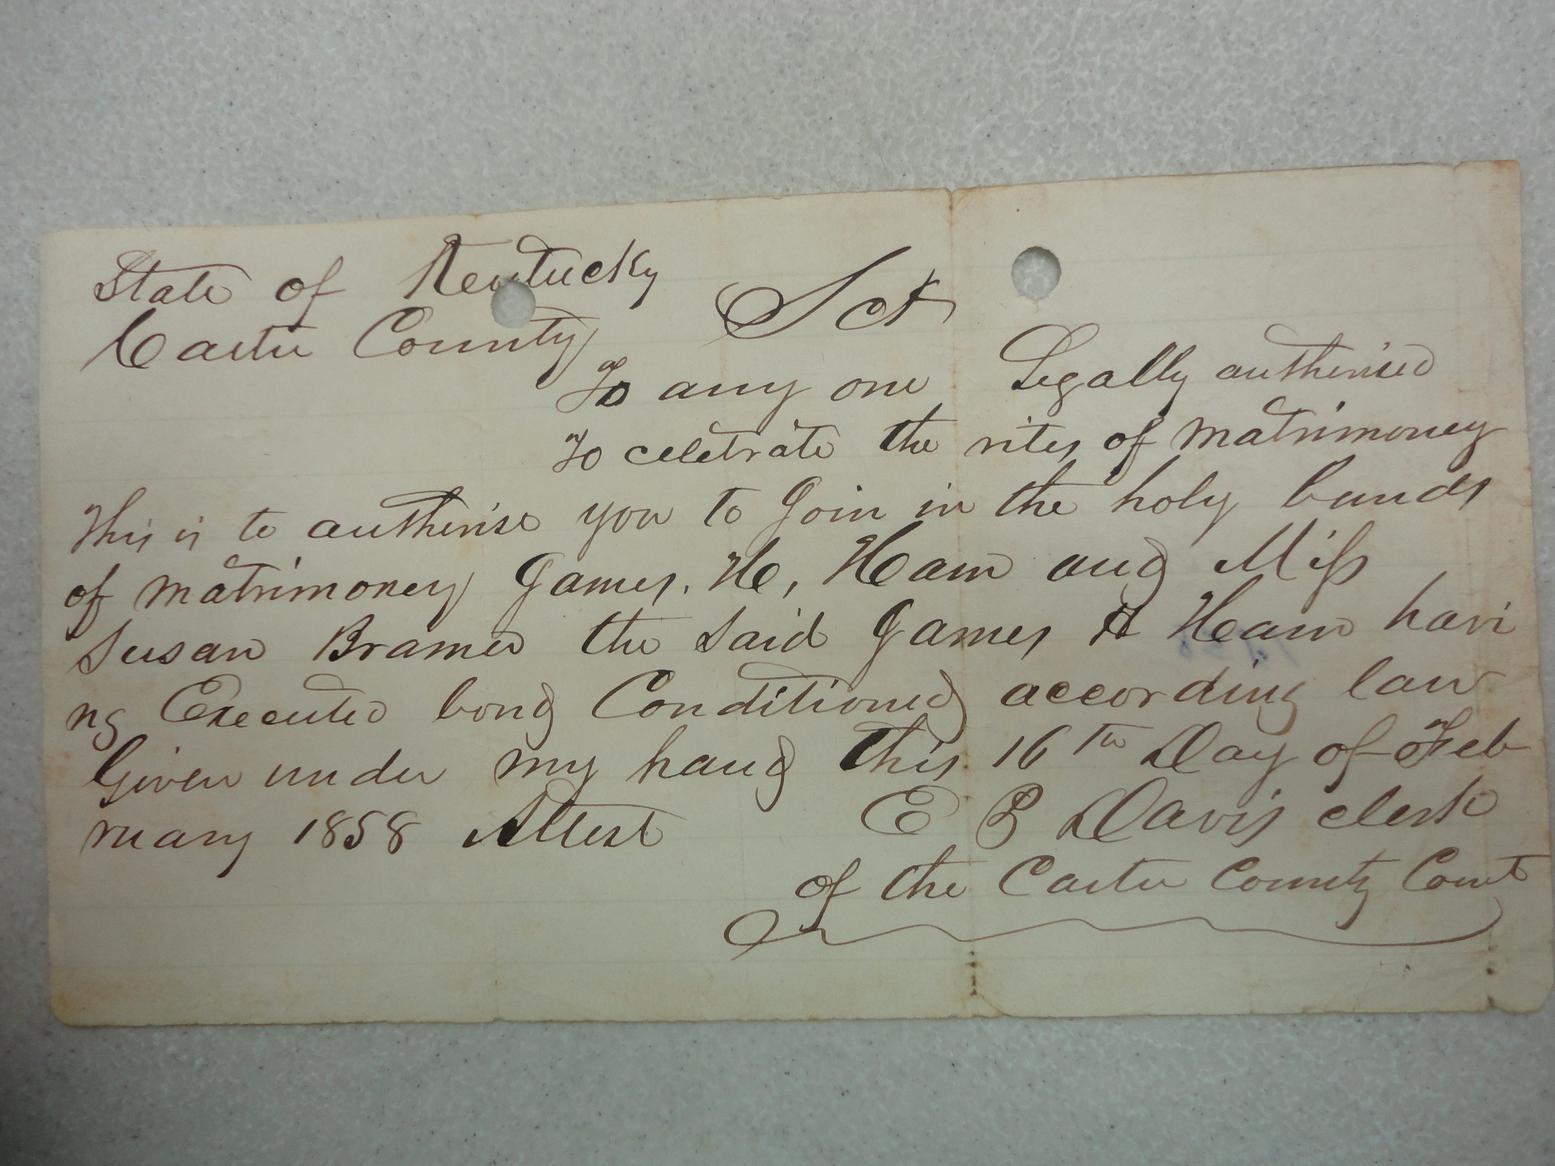 State of Kentucky
Carter County Sct
To any one Legally authorised
To celebrate the rites of matrimoney
This is to authorise you to Join in the holy bands
of matrimoney James. H, Ham and Miss
Susan Bramer the said James H Ham havi
ng Executed bond Conditioned according law
Given under my hand this 16th Day of Feb
ruary 1858 Attest E B Davis clerk
of the Carter County Court